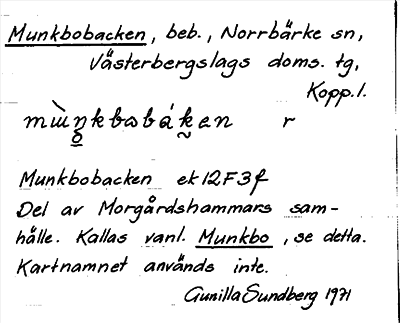 Munkbobacken, beb., Norrbärke sn,
Västerbergslags doms. tg,
Kopp.l.
r
Munkbobacken ek 12F3f
Del av Morgårdshammars sam-
hälle. Kallas vanl. Munkbo, se detta.
Kartnamnet används inte.
Gunilla Sundberg 1971